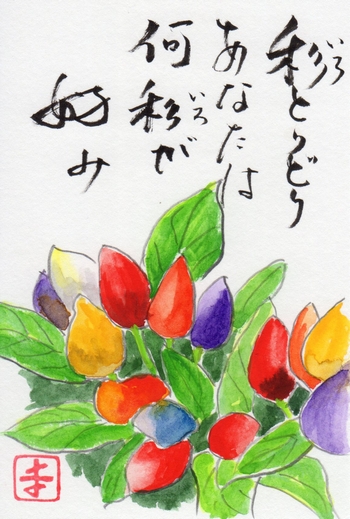 彩とりどり
いろ
あなたは
何彩が
いろ
好み